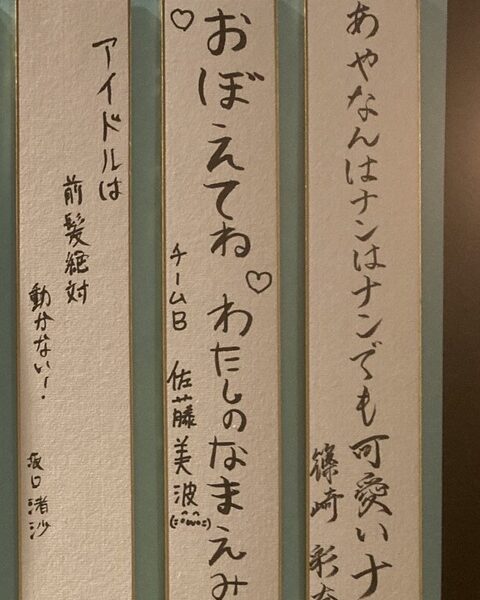 あやなんはナンはナンでも可愛いナ
篠崎 彩奈
♡おぼえてね♡わたしのなまえみ
チームB 佐藤美波
アイドルは
前髪絶対
動かない!
坂口渚沙